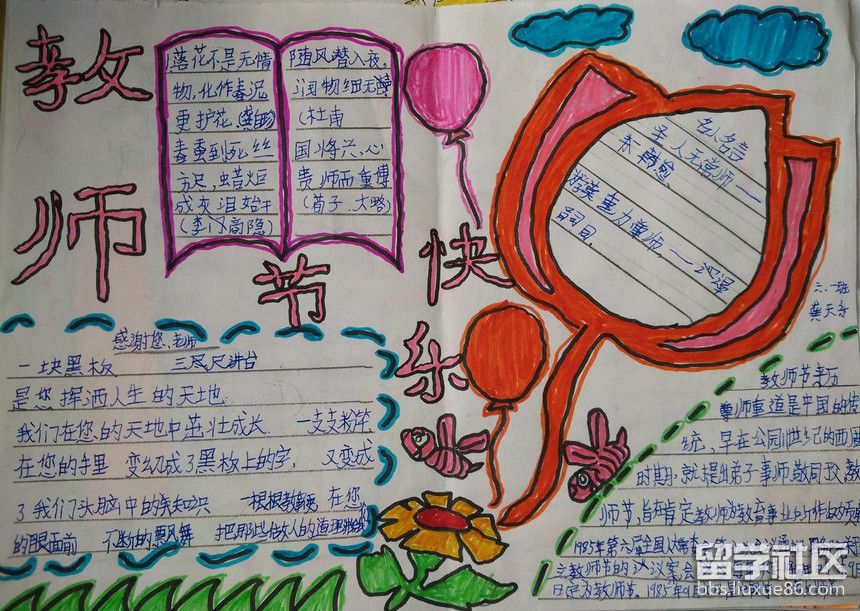 教师
节
快乐
落花不是无情
物,化作春泥
更护花、(龚自珍)
春蚕到死丝
方尽,蜡炬
成灰泪始干
(李商隐)
随风潜入夜,
润物细无声
(杜甫
国将兴,心
贵师而重傅
(荀子.大略)
名人名言
圣人无常师——
韩愈
尊师——
六.一班
龚天乐
感谢您、老师
一块黑板 三尺尺讲台
是您挥洒人生的天地.
我们在您的天地中茁壮成长 一支支粉笔
在您的手里 变幻成了黑板上的字, 又变成
了我们头脑中的 知识 一根根教鞭 在您
的眼面前 不断的飘风舞 把 做人的道理
教师节来历
尊师重道是中国的传
统,早在公 西周
时期,就提出弟子事师,敬同
师节,旨在肯定教师 教育事业 所作的贡
1985年第六届全国人
立教师节的 议案
日定为教师节. 1985年
留学社区
bbs.liuxue86.com